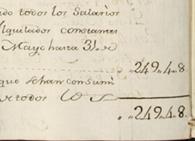 ado todos los Salarios
lquilados constantes
Mayo hasta 31 de
249.4.8
que se han consumi
todos
249.4.8.